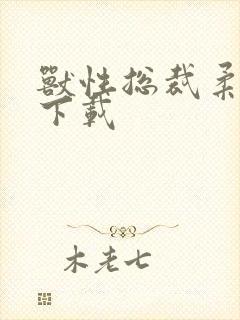 獸性总裁柔
下载
木老七